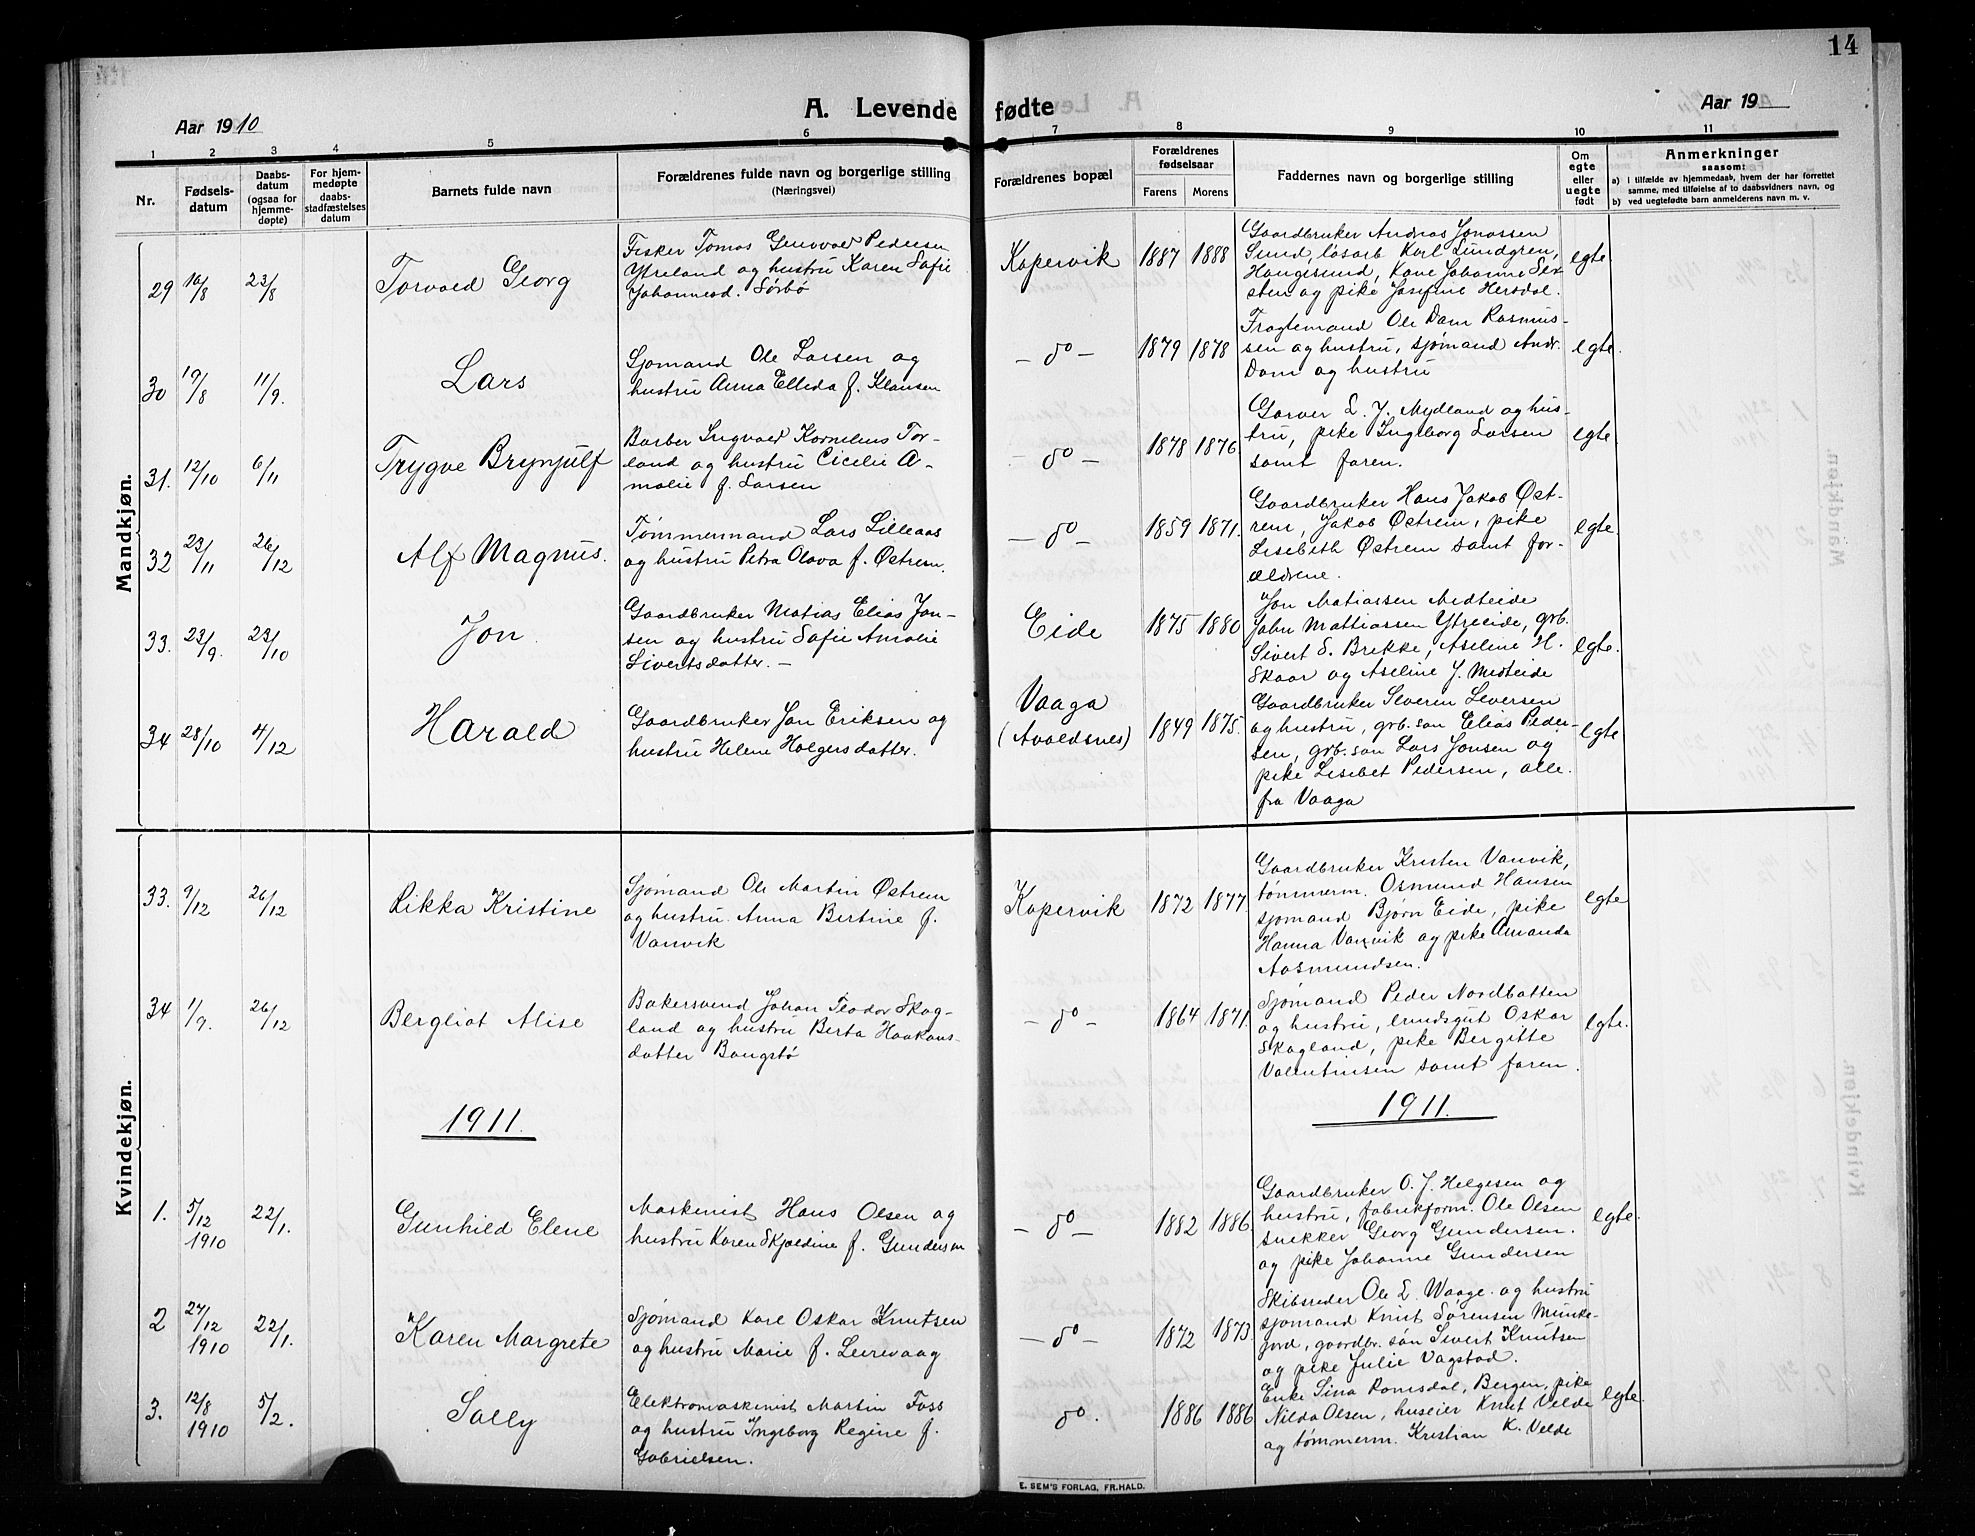 14
Aar 1910
A. Levende fødte
Aar 19
1 2 3 4 5 6 7 8 9 10 11
Nr.
Fødsels-
datum
Daabs-
datum
(ogsaa for
hjemme-
døpte)
For hjem-
medøpte
daabs-
stadfæstelses
datum
Barnets fulde navn
Forældrenes fulde navn og borgerlige stilling
(Næringsvei)
Forældrenes bopæl
Forældrenes
fødselsaar
Farens Morens
Faddernes navn og borgerlige stilling
Om
egte
eller
uegte
født
Anmerkninger
saasom:
a) i tilfælde av hjemmedaab, hvem der har forrettet
samme, med tilføielse af to daabsvidners navn, og
b) ved uegtefødte barn anmelderens navn m. v.
Mandkjøn.
29 16/8 23/8 Torvald Georg
Fisker Tomas Gunvald Pedersen
Ytreland og hustru Karen Sofie
Johannesd. Sørbø
Kopervik 1887 1888
Gaardbruker Andreas Jonassen
Sund, løsarb. Karl Lundgren,
Haugesund, Kone Johanne Sev
sten og pike Josefine Hersdal.
egte
30 19/8 11/9. Lars
Sjømand Ole Larsen og
hustru Anna Elleda f. Klausen
- do - 1879 1878
Fragtemand Ole Dam Rasmus-
sen og hustru, sjømand Andr.
Dam og hustru
egte.
31. 12/10 6/11 Trygve Brynjulf
Barber Ingvald Kornelius Tor-
land og hustru Cicilie A-
malie f. Larsen
- do - 1878 1876
Garver L. J. Mydland og hus-
tru, pike Ingeborg Larsen
samt faren.
egte
32 23/11 26/12 Alf Magnus.
Tømmermand Lars Lilleaas
og hustru Petra Olava f. Østrem.
- do - 1859 1871.
Gaardbruker Hans Jakob Øst-
rem, Jakob Østrem, pike
Lisebeth Østrem samt for-
ældrene.
egte.
33. 23/9. 23/10 Jon.
Gaardbruker Matias Elias Jon-
sen og hustru Sofie Amalie
Sivertsdatter. -
Eide 1875 1880
Jon Matiassen Medteide
John Mattiassen Ytreeide, grb.
Sivert S. Brekke, Aseline H.
Skaar og Aseline J. Medteide
egte.
34 28/10 4/12 Harald
Gaardbruker Jon Eriksen og
hustru Helene Holgersdatter.
Vaaga
(Avaldsnes) 1849 1875.
Gaardbruker Severin Seversen
og hustru, grb. søn Elias Peder-
sen, grb. søn Lars Jonsen og
pike Lisebet Pedersen, alle
fra Vaaga
egte
Kvindekjøn.
33. 9/12 26/12 Rikka Kristine
Sjømand Ole Martin Østrem
og hustru Anna Bertine f.
Vanvik
Kopervik 1872 1877
Gaardbruker Kristen Vanvik,
tømmerm. Osmund Hansen
sjømand Bjørn Eide, pike
Hanna Vanvik og pike Amanda
Aasmundsen.
egte
34 1/9. 26/12 Bergliot Alise
Bakersvend Johan Teodor Skog-
land og hustru Berta Haakons-
datter Bangstø
- do - 1864 1871.
Sjømand Peder Nordbotten
og hustru, ærundsgut Oskar
Skogland, pike Bergitte
Valentinsen samt faren.
egte.
1911. 1911.
1. 5/12 1910 22/1. Gunhild Elene
Maskinist Hans Olsen og
hustru Karen Skjoldine f. Gundersen
- do - 1882 1886
Gaardbruker O. J. Helgesen og
hustru, fabrikform. Ole Olsen
snekker Georg Gundersen.
og pike Johanne Gundersen
egte.
2 27/12 1910 22/1. Karen Margrete
Sjømand Karl Oskar Knutsen
og hustru Marie f. Leirevaag
- do - 1872 1873.
Skibsreder Ole L. Waage og hustru
sjømand Knut Sørensen Munke-
jord, gaardbr. søn Sivert Knutsen
og pike Julie Vagstad.
3. 12/8 1910 5/2. Solly
Elektromaskinist Martin Foss
og hustru Ingeborg Regine f.
Gabrielsen.
do. 1886 1886
Enke Sina Romsdal, Bergen, pike
Nilda Olsen, huseier Knut Velde
og tømmerm. Kristian K. Velde
egte.
E. SEM'S FORLAG, FR.HALD.